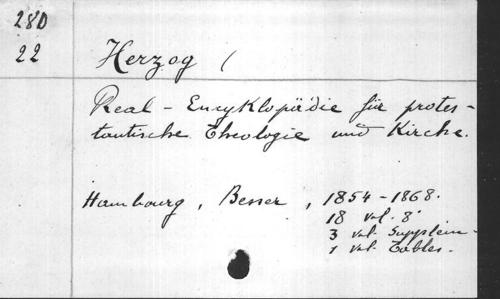 280
22
Herzog (
Real - Encyklopädie für protes-
tantische Theologie und Kirche.
Hambourg, Besser, 1854-1868.
18 vol. 8°
3 vol. Supplém-
1 vol. Tables.